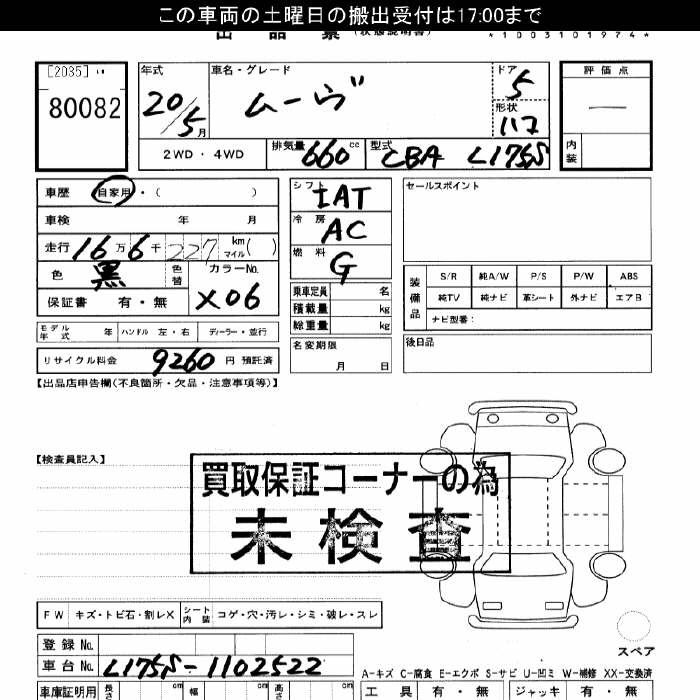 この車両の土曜日の搬出受付は17:00まで
出 品 票 (状態説明書) *1003101974*
[2035]
80082
年式 20/5月
車名・グレード ムーヴ
ドア 5
形状 117
評価点 —
内装
2WD・4WD 排気量 660cc 型式 CBA L175S
車歴 自家用・( )
シフト IAT
セールスポイント
車検 年 月
冷房 AC
走行 16万6千227km マイル( )
燃料 G
色 黒 色替 カラーNo. X06
保証書 有・無
乗車定員 名
積載量 kg
総重量 kg
装備品 S/R 純A/W P/S P/W ABS
純TV 純ナビ 革シート 外ナビ エアB
ナビ型番:
モデル年式 年 ハンドル 左・右 ディーラー・並行
名変期限 月 日
後日品
リサイクル料金 9260 円 預託済
【出品店申告欄(不良箇所・欠品・注意事項等)】
【検査員記入】
買取保証コーナーの為
未検査
FW キズ・トビ石・割レX シート内装 コゲ・穴・汚レ・シミ・破レ・スレ
スペア
登録No.
車台No. L175S-1102522
A-キズ C-腐食 E-エクボ S-サビ U-凹ミ W-補修 XX-交換済
車庫証明用 長さ cm 幅 cm 高さ cm
工具 有・無 ジャッキ 有・無